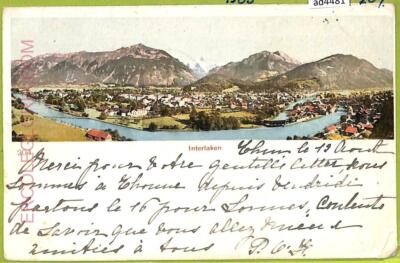 1903
ad4481
20,-
Interlaken
Thun le 12 Août
Merci pour votre gentille lettre, nous
sommes à Thoune depuis vendredi
partons le 16 pour Contents
de savoir que vous allez
amitiés à tous